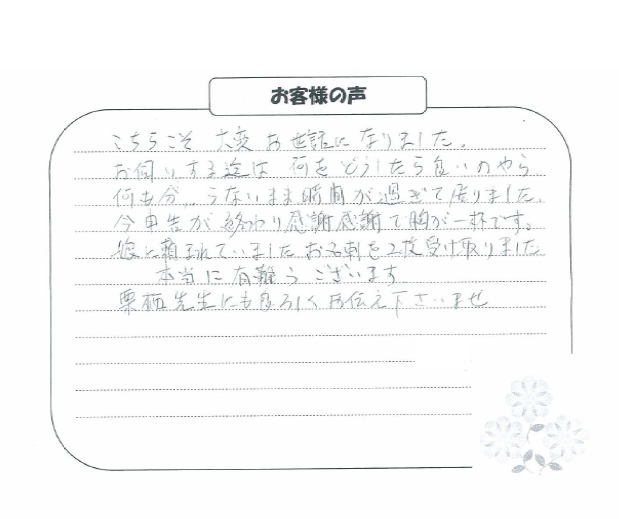 お客様の声
こちらこそ 大変 お世話に なりました。
お伺いする迄は 何を どうしたら良いのやら
何も分からないまま時間が過ぎて居りました。
今申告が終わり感謝感謝で胸が一杯です。
娘に頼まれていましたお名刺を2枚受け取りました
本当に有難うございます
栗栖先生にも良ろしくお伝え下さいませ